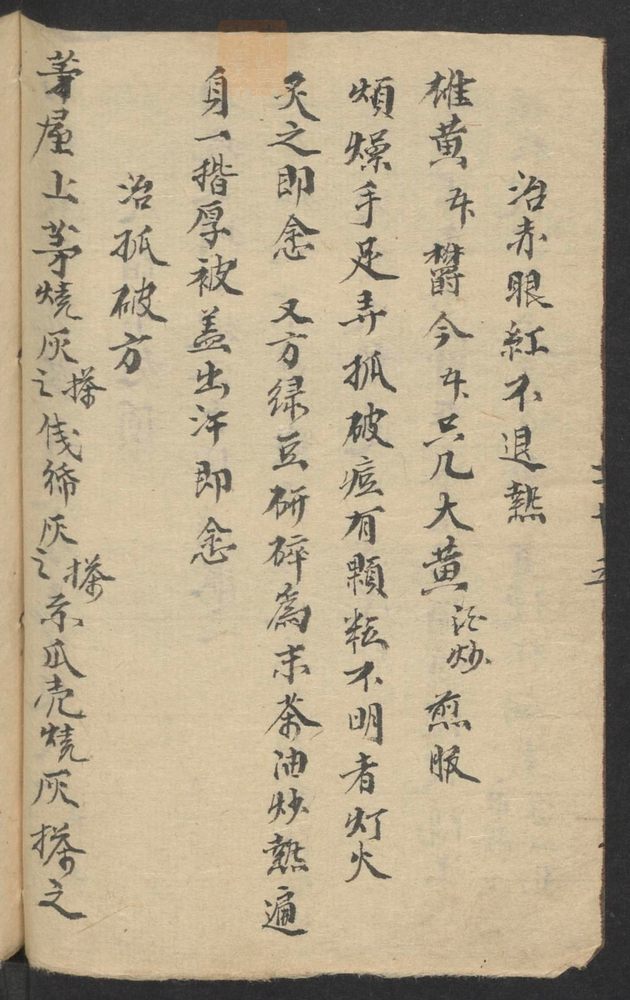 治赤眼紅不退熱
雄黄 欝今 只几大黄 酒炒 煎服
煩燥手足弄抓破痘有顆粒不明者灯火
炙之即愈 又方绿豆研碎為末茶油炒熱遍
身一揩厚被盖出汗即愈
治抓破方
茅屋上茅燒灰搽之 灰搽之 瓜壳燒灰搽之